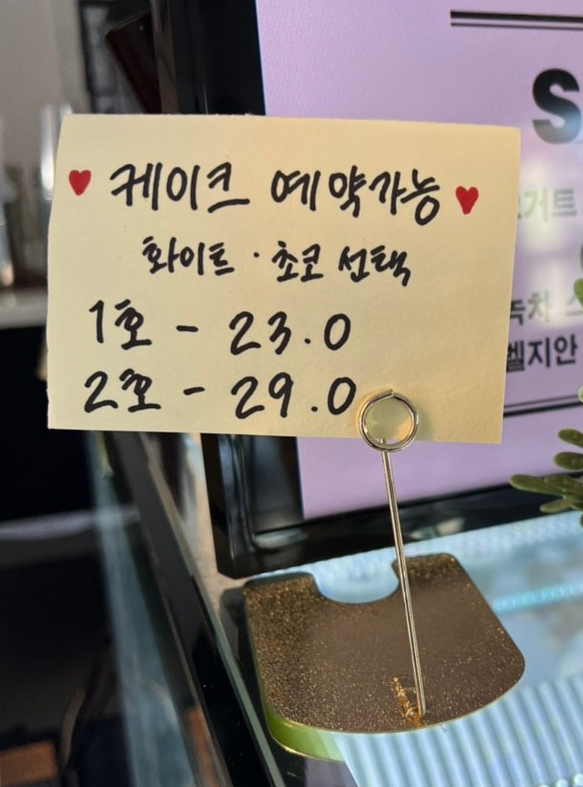 ♥ 케이크 예약가능 ♥
화이트 · 초코 선택
1호 - 23.0
2호 - 29.0
S
거트
녹차
벨지안